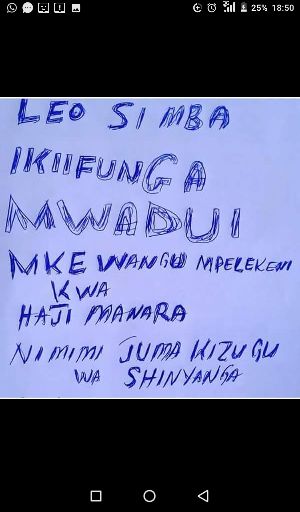 25% 18:50
LEO SIMBA
IKIIFUNGA
MWADUI
MKE WANGU MPELEKENI
KWA
HAJI MANARA
NI MIMI JUMA KIZUGU
WA SHINYANGA